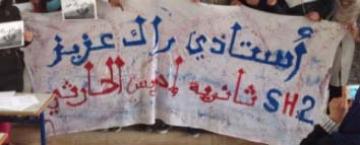 أستاذي راك عزيز
SH2 ثانوية إدريس الحارثي